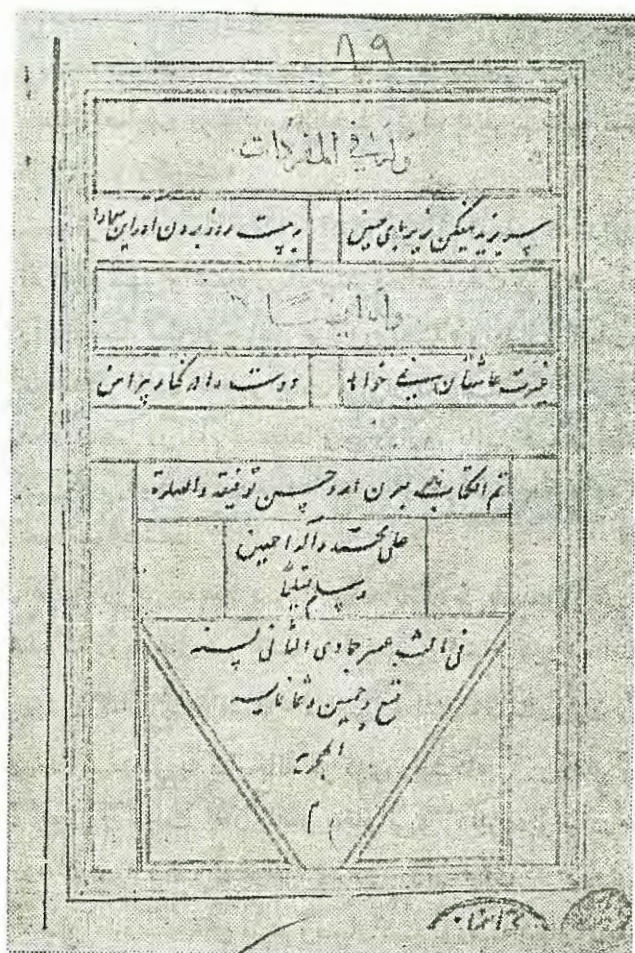 ٨٩
وله فی المفردات
سر یزید میفکن زیر پای حسین
به بیست روز برون آور این
وله ایضا
عاشقان خواهد
دوست دارد کنار پیراهن
تم الکتاب بعون الله وحسن توفیقه والصلوة
علی محمد وآله اجمعین
وسلم تسلیما
فی ثالث عشر جمادی الثانی لسنه
تسع وخمسین وثمانمایه
الهجریه
م